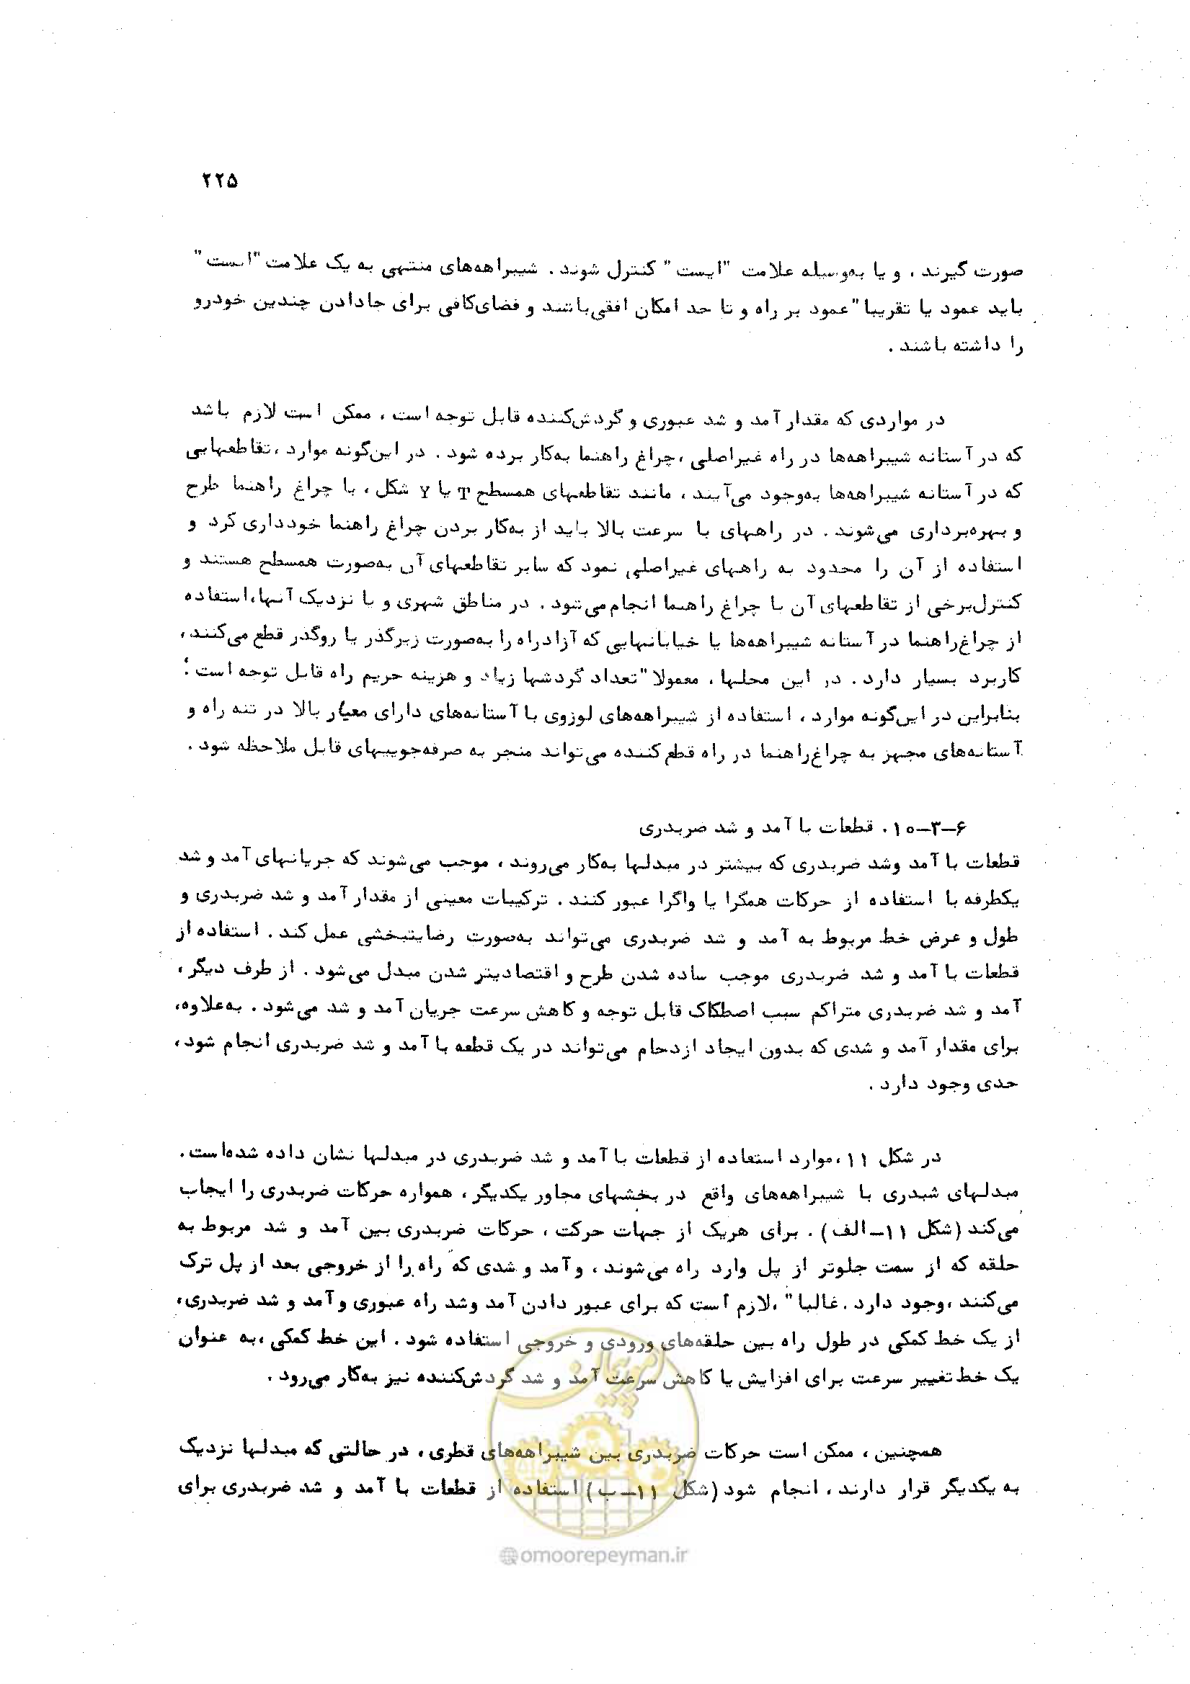 ۲۲۵
صورت گیرند ، و یا به‌وسیله علامت "ایست" کنترل شوند . شیبراهه‌های منتهی به یک علامت "ایست"
باید عمود یا تقریبا" عمود بر راه و تا حد امکان افقی باشند و فضای کافی برای جادادن چندین خودرو
را داشته باشند .
در مواردی که مقدار آمد و شد عبوری و گردش‌کننده قابل توجه است ، ممکن است لازم باشد
که در آستانه شیبراهه‌ها در راه غیراصلی ، چراغ راهنما به‌کار برده شود . در این‌گونه موارد ، تقاطعهایی
که در آستانه شیبراهه‌ها به‌وجود می‌آیند ، مانند تقاطعهای همسطح T یا Y شکل ، با چراغ راهنما طرح
و بهره‌برداری می‌شوند . در راههای با سرعت بالا باید از به‌کار بردن چراغ راهنما خودداری کرد و
استفاده از آن را محدود به راههای غیراصلی نمود که سایر تقاطعهای آن به‌صورت همسطح هستند و
کنترل برخی از تقاطعهای آن با چراغ راهنما انجام می‌شود . در مناطق شهری و یا نزدیک آنها ، استفاده
از چراغ راهنما در آستانه شیبراهه‌ها یا خیابانهایی که آزادراه را به‌صورت زیرگذر یا روگذر قطع می‌کنند ،
کاربرد بسیار دارد . در این محلها ، معمولا" تعداد گردشها زیاد و هزینه حریم راه قابل توجه است ؛
بنابراین در این‌گونه موارد ، استفاده از شیبراهه‌های لوزوی با آستانه‌های دارای معیار بالا در تنه راه و
آستانه‌های مجهز به چراغ راهنما در راه قطع‌کننده می‌تواند منجر به صرفه‌جوییهای قابل ملاحظه شود .
۶-۳-۱۰. قطعات با آمد و شد ضربدری
قطعات با آمد وشد ضربدری که بیشتر در مبدلها به‌کار می‌روند ، موجب می‌شوند که جریانهای آمد و شد
یکطرفه با استفاده از حرکات همگرا یا واگرا عبور کنند . ترکیبات معینی از مقدار آمد و شد ضربدری و
طول و عرض خط مربوط به آمد و شد ضربدری می‌تواند به‌صورت رضایتبخشی عمل کند . استفاده از
قطعات با آمد و شد ضربدری موجب ساده شدن طرح و اقتصادیتر شدن مبدل می‌شود . از طرف دیگر ،
آمد و شد ضربدری متراکم سبب اصطکاک قابل توجه و کاهش سرعت جریان آمد و شد می‌شود . به‌علاوه،
برای مقدار آمد و شدی که بدون ایجاد ازدحام می‌تواند در یک قطعه با آمد و شد ضربدری انجام شود ،
حدی وجود دارد .
در شکل ۱۱ ، موارد استفاده از قطعات با آمد و شد ضربدری در مبدلها نشان داده شده‌است .
مبدلهای شبدری با شیبراهه‌های واقع در بخشهای مجاور یکدیگر ، همواره حرکات ضربدری را ایجاب
می‌کند (شکل ۱۱-الف) . برای هریک از جهات حرکت ، حرکات ضربدری بین آمد و شد مربوط به
حلقه که از سمت جلوتر از پل وارد راه می‌شوند ، و آمد و شدی که راه را از خروجی بعد از پل ترک
می‌کنند ، وجود دارد . غالبا" ، لازم است که برای عبور دادن آمد وشد راه عبوری و آمد و شد ضربدری،
از یک خط کمکی در طول راه بین حلقه‌های ورودی و خروجی استفاده شود . این خط کمکی ، به عنوان
یک خط تغییر سرعت برای افزایش یا کاهش سرعت آمد و شد گردش‌کننده نیز به‌کار می‌رود .
همچنین ، ممکن است حرکات ضربدری بین شیبراهه‌های قطری ، در حالتی که مبدلها نزدیک
به یکدیگر قرار دارند ، انجام شود (شکل ۱۱-ب) استفاده از قطعات با آمد و شد ضربدری برای
امورپیمان
@omoorepeyman.ir